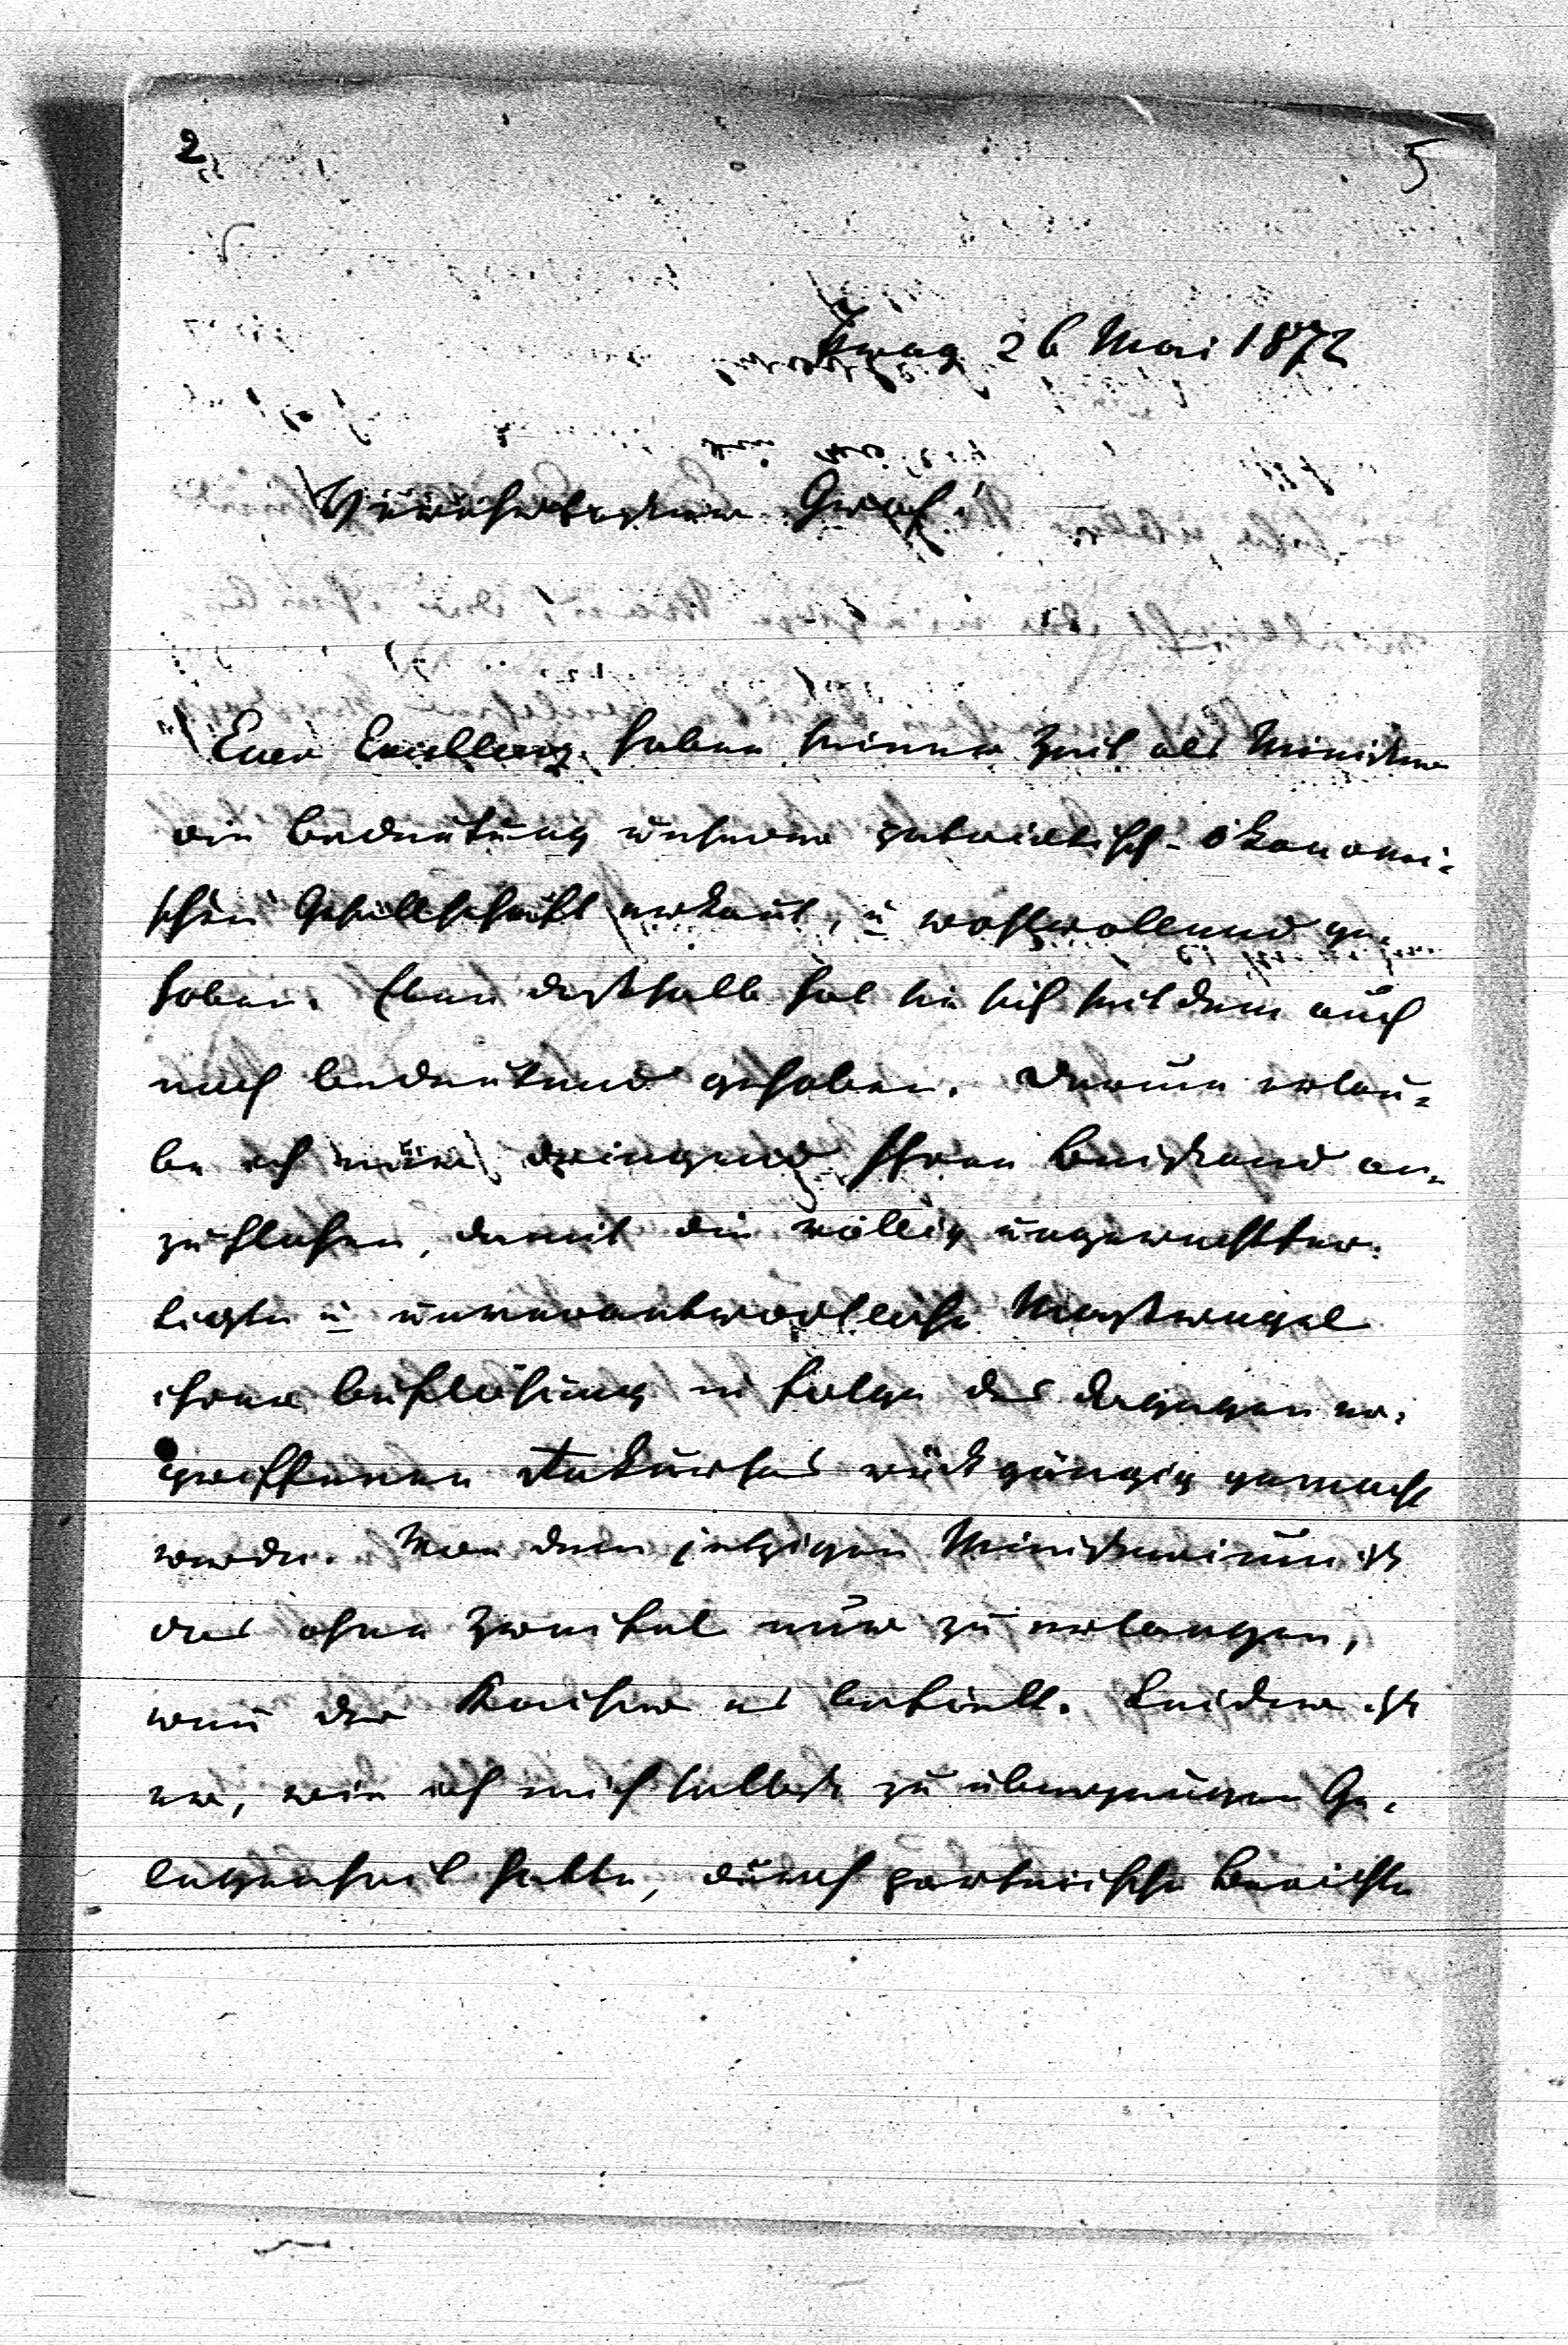 2
5
Prag 26 Mai 1872
Hochverehrtester Graf!
Euer Excellenz haben seiner Zeit als Minister
die Bedeutung unserer patriotisch-ökonomi-
schen Gesellschaft erkañt, u wohlwollend ge-
hoben. Eben deßhalb hat sie sich seitdem auch
noch bedeutend gehoben. Darum erlau-
be ich mir dringend Ihren Beistand an-
zuflehen, damit die völlig ungerechtfer-
tigte u unverantwortliche Maßregel
ihrer Auflösung in Folge des dagegen er-
griffenen Rekurses rückgängig gemacht
werde. Von dem jetzigen Ministerium ist
das ohne Zweifel nur zu erlangen,
weñ der Kaiser es befiehlt. Leider ist
er, wie ich mich selbst zu überzeugen Ge-
legenheit hatte, durch parteiische Berichte